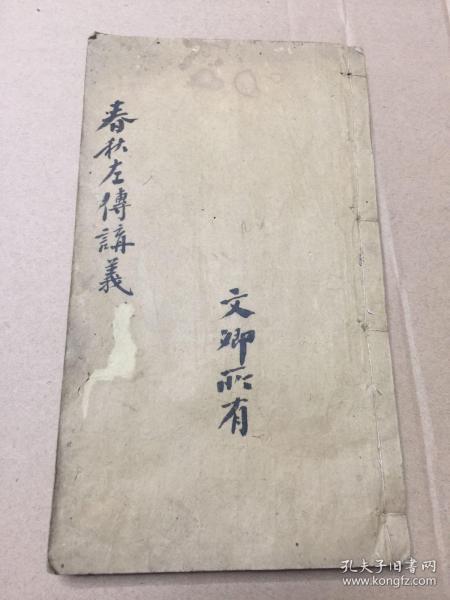 春秋左傳講義
文卿所有
孔夫子旧书网
www.kongfz.com